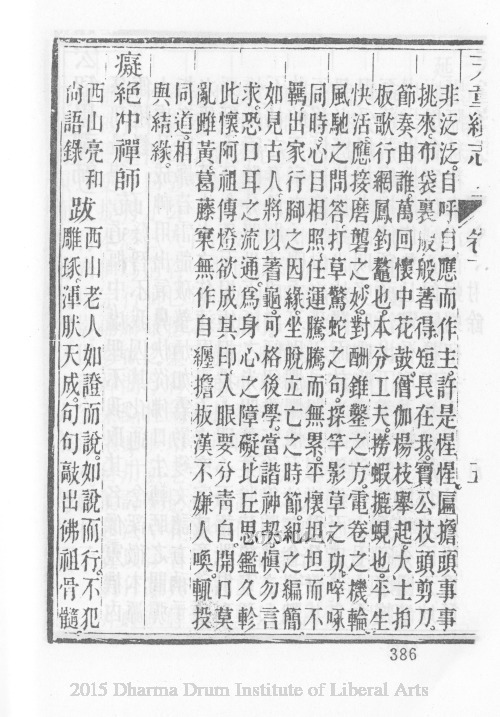 天童續志 卷 五
非泛泛。自呼自應而作主。許是惺惺。匾擔頭事事
挑來。布袋裏般般著得。短長在我。寶公杖頭剪刀。
節奏由誰。萬回懷中花鼓。僧伽楊枝舉起。大士拍
板歌行。網鳳釣鼇也。本分工夫。撈蝦摝蜆也。平生
快活。應接磨礱之妙。對酬錐鑿之方。電卷之機輪。
風馳之問答。打草驚蛇之句。探竿影草之功。啐啄
同時。心目相照。任運騰騰而無累。平懷坦坦而不
羈。出家行腳之因緣。坐脫立亡之時節。紀之編簡
如見古人。將以著龜。可格後學。當諧神契。愼勿言
求。恐口耳之流通。爲身心之障礙。比丘思鑑久軫
此懷。阿祖傳燈欲成其印。人眼要分靑白。開口莫
亂雌黃。葛藤窠無作自纏。擔板漢不嫌人喚。輒投
同道。相
與結緣。
癡絕冲禪師
西山亮和
尙語錄 跋 西山老人如證而說。如說而行。不犯
雕琢。渾肰天成。句句敲出佛祖骨髓。
386
2015 Dharma Drum Institute of Liberal Arts